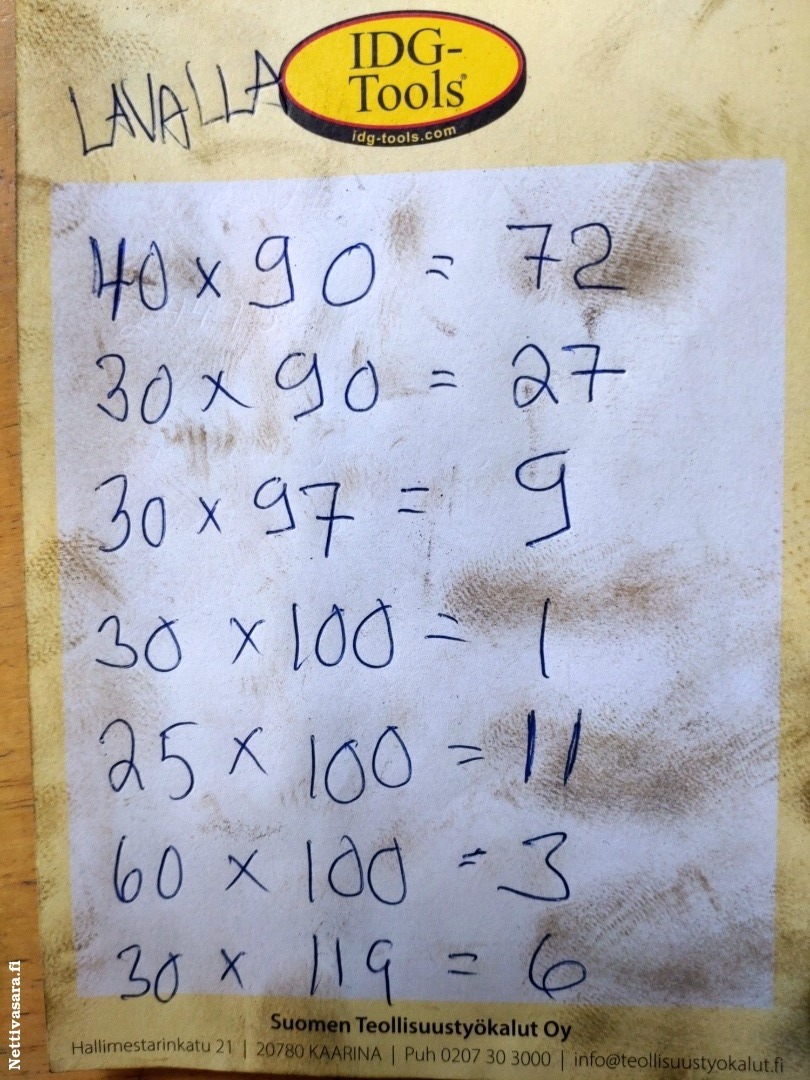 LAVALLA
IDG-
Tools®
idg-tools.com
40 x 90 = 72
30 x 90 = 27
30 x 97 = 9
30 x 100 = 1
25 x 100 = 11
60 x 100 = 3
30 x 119 = 6
Suomen Teollisuustyökalut Oy
Hallimestarinkatu 21 | 20780 KAARINA | Puh 0207 30 3000 | info@teollisuustyokalut.fi
Nettivasara.fi